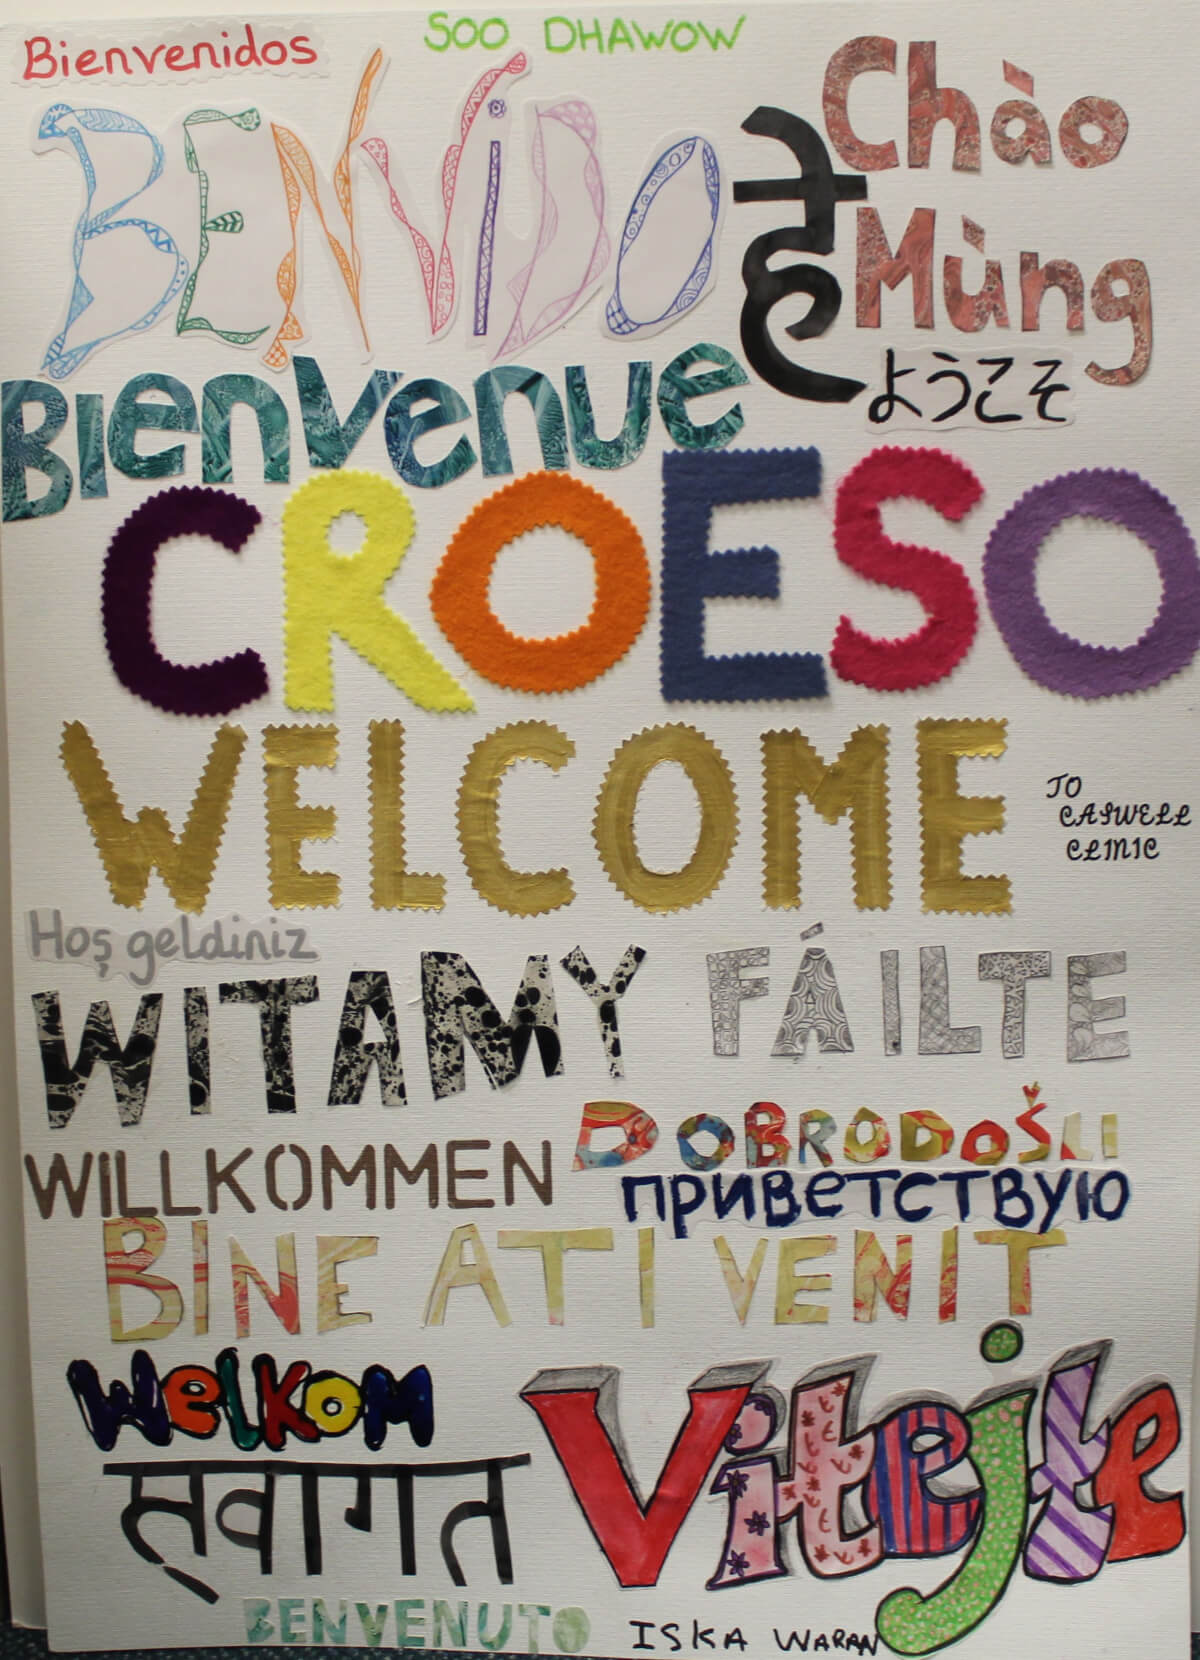 Bienvenidos
SOO DHAWOW
BENViDO
हे
Chào
Mùng
ようこそ
Bienvenue
CROESO
WELCOME
TO
CASWELL
CLINIC
Hoş geldiniz
WITAMY
FÁILTE
WILLKOMMEN
DOBRODOŠLI
приветствую
BINE ATI VENIT
Welkom
Vitejte
स्वागत
BENVENUTO
ISKA WARAN